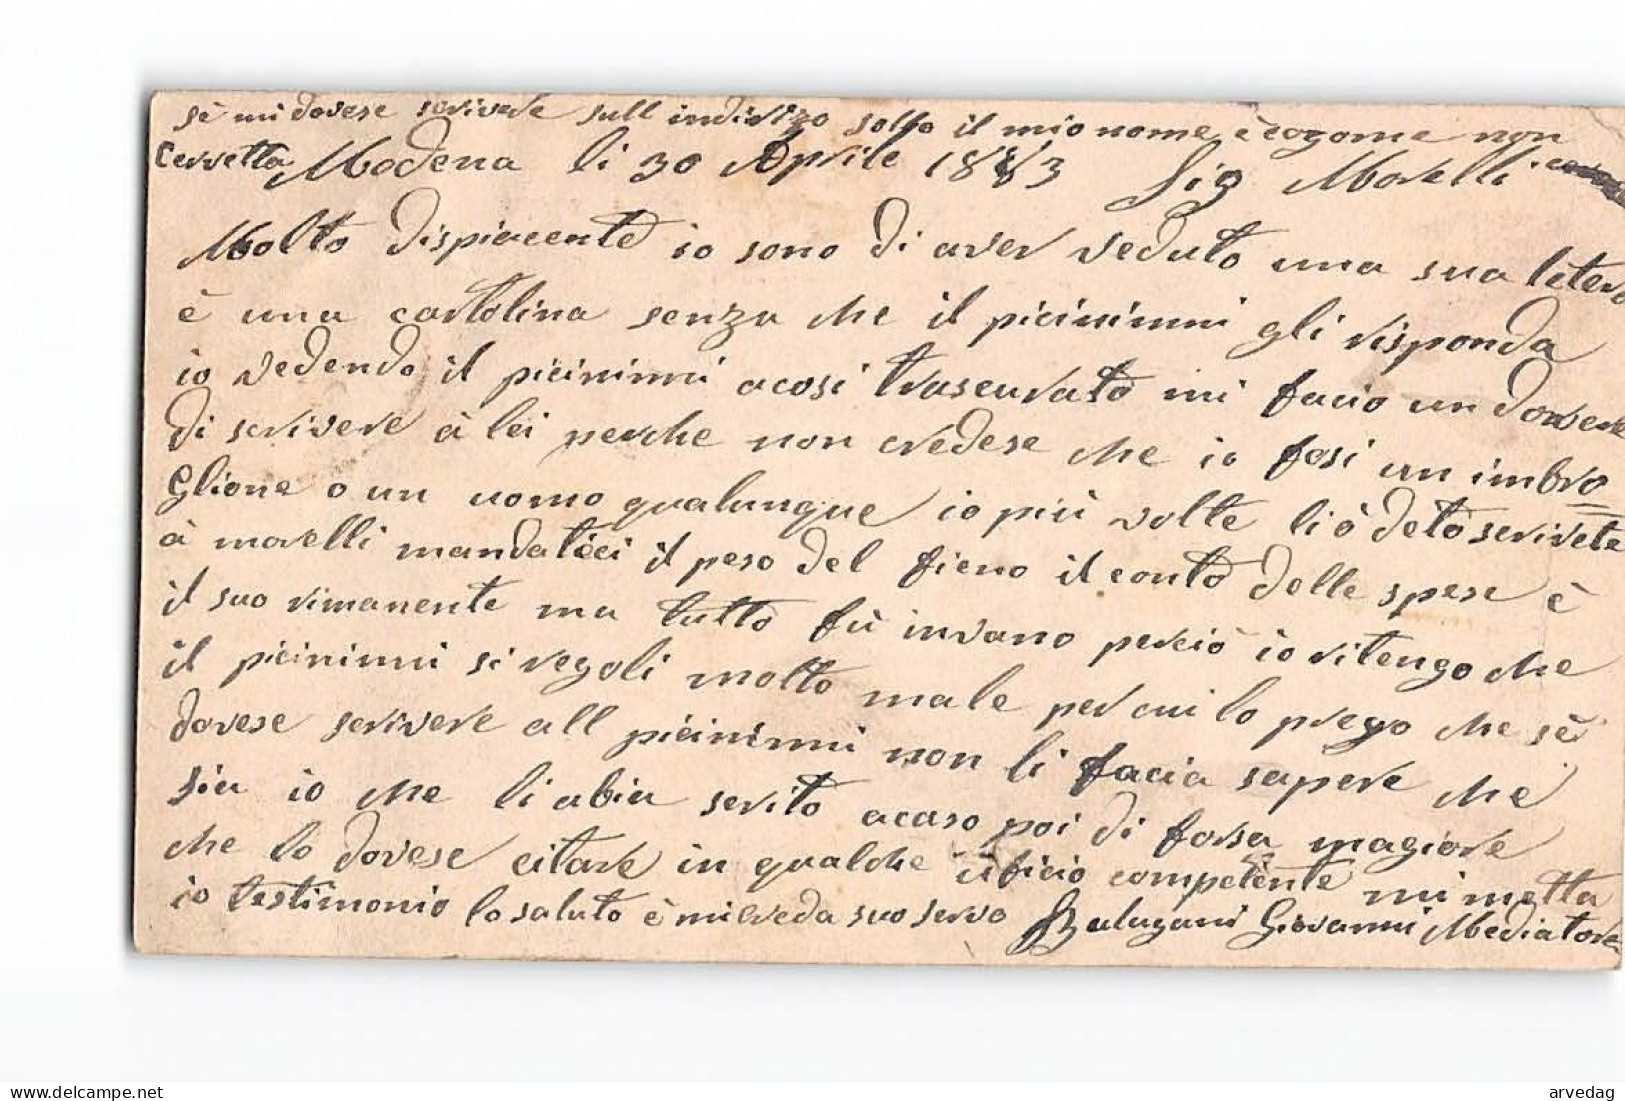 sè mi dovese scrivere sull indirizzo sotto il mio nome è cogome non
Cervetta Modena li 30 Aprile 1883 Sig Morelli
Molto dispiacente io sono di aver veduto una sua letera
è una cartolina senza che il picininni gli risponda
io vedendo il picininni acosi trascurato mi facio un dovere
di scrivere à lei perche non credese che io fosi un imbro
glione o un uomo qualunque io più volte li ò deto scrivete
à morelli mandateci il peso del fieno il conto delle spese è
il suo rimanente ma tutto fù invano perciò io ritengo che
il picininni si regoli molto male per cui lo prego che sè
dovese scrivere all picininni non li facia sapere che
sia io che li abia scrito acaso poi di forsa magiore
che lo dovese citare in qualche uficio competente mi metta
io testimonio lo saluto è mi creda suo servo Balugani Giovanni Mediatore
arvedag
All rights reserved - delcampe.net